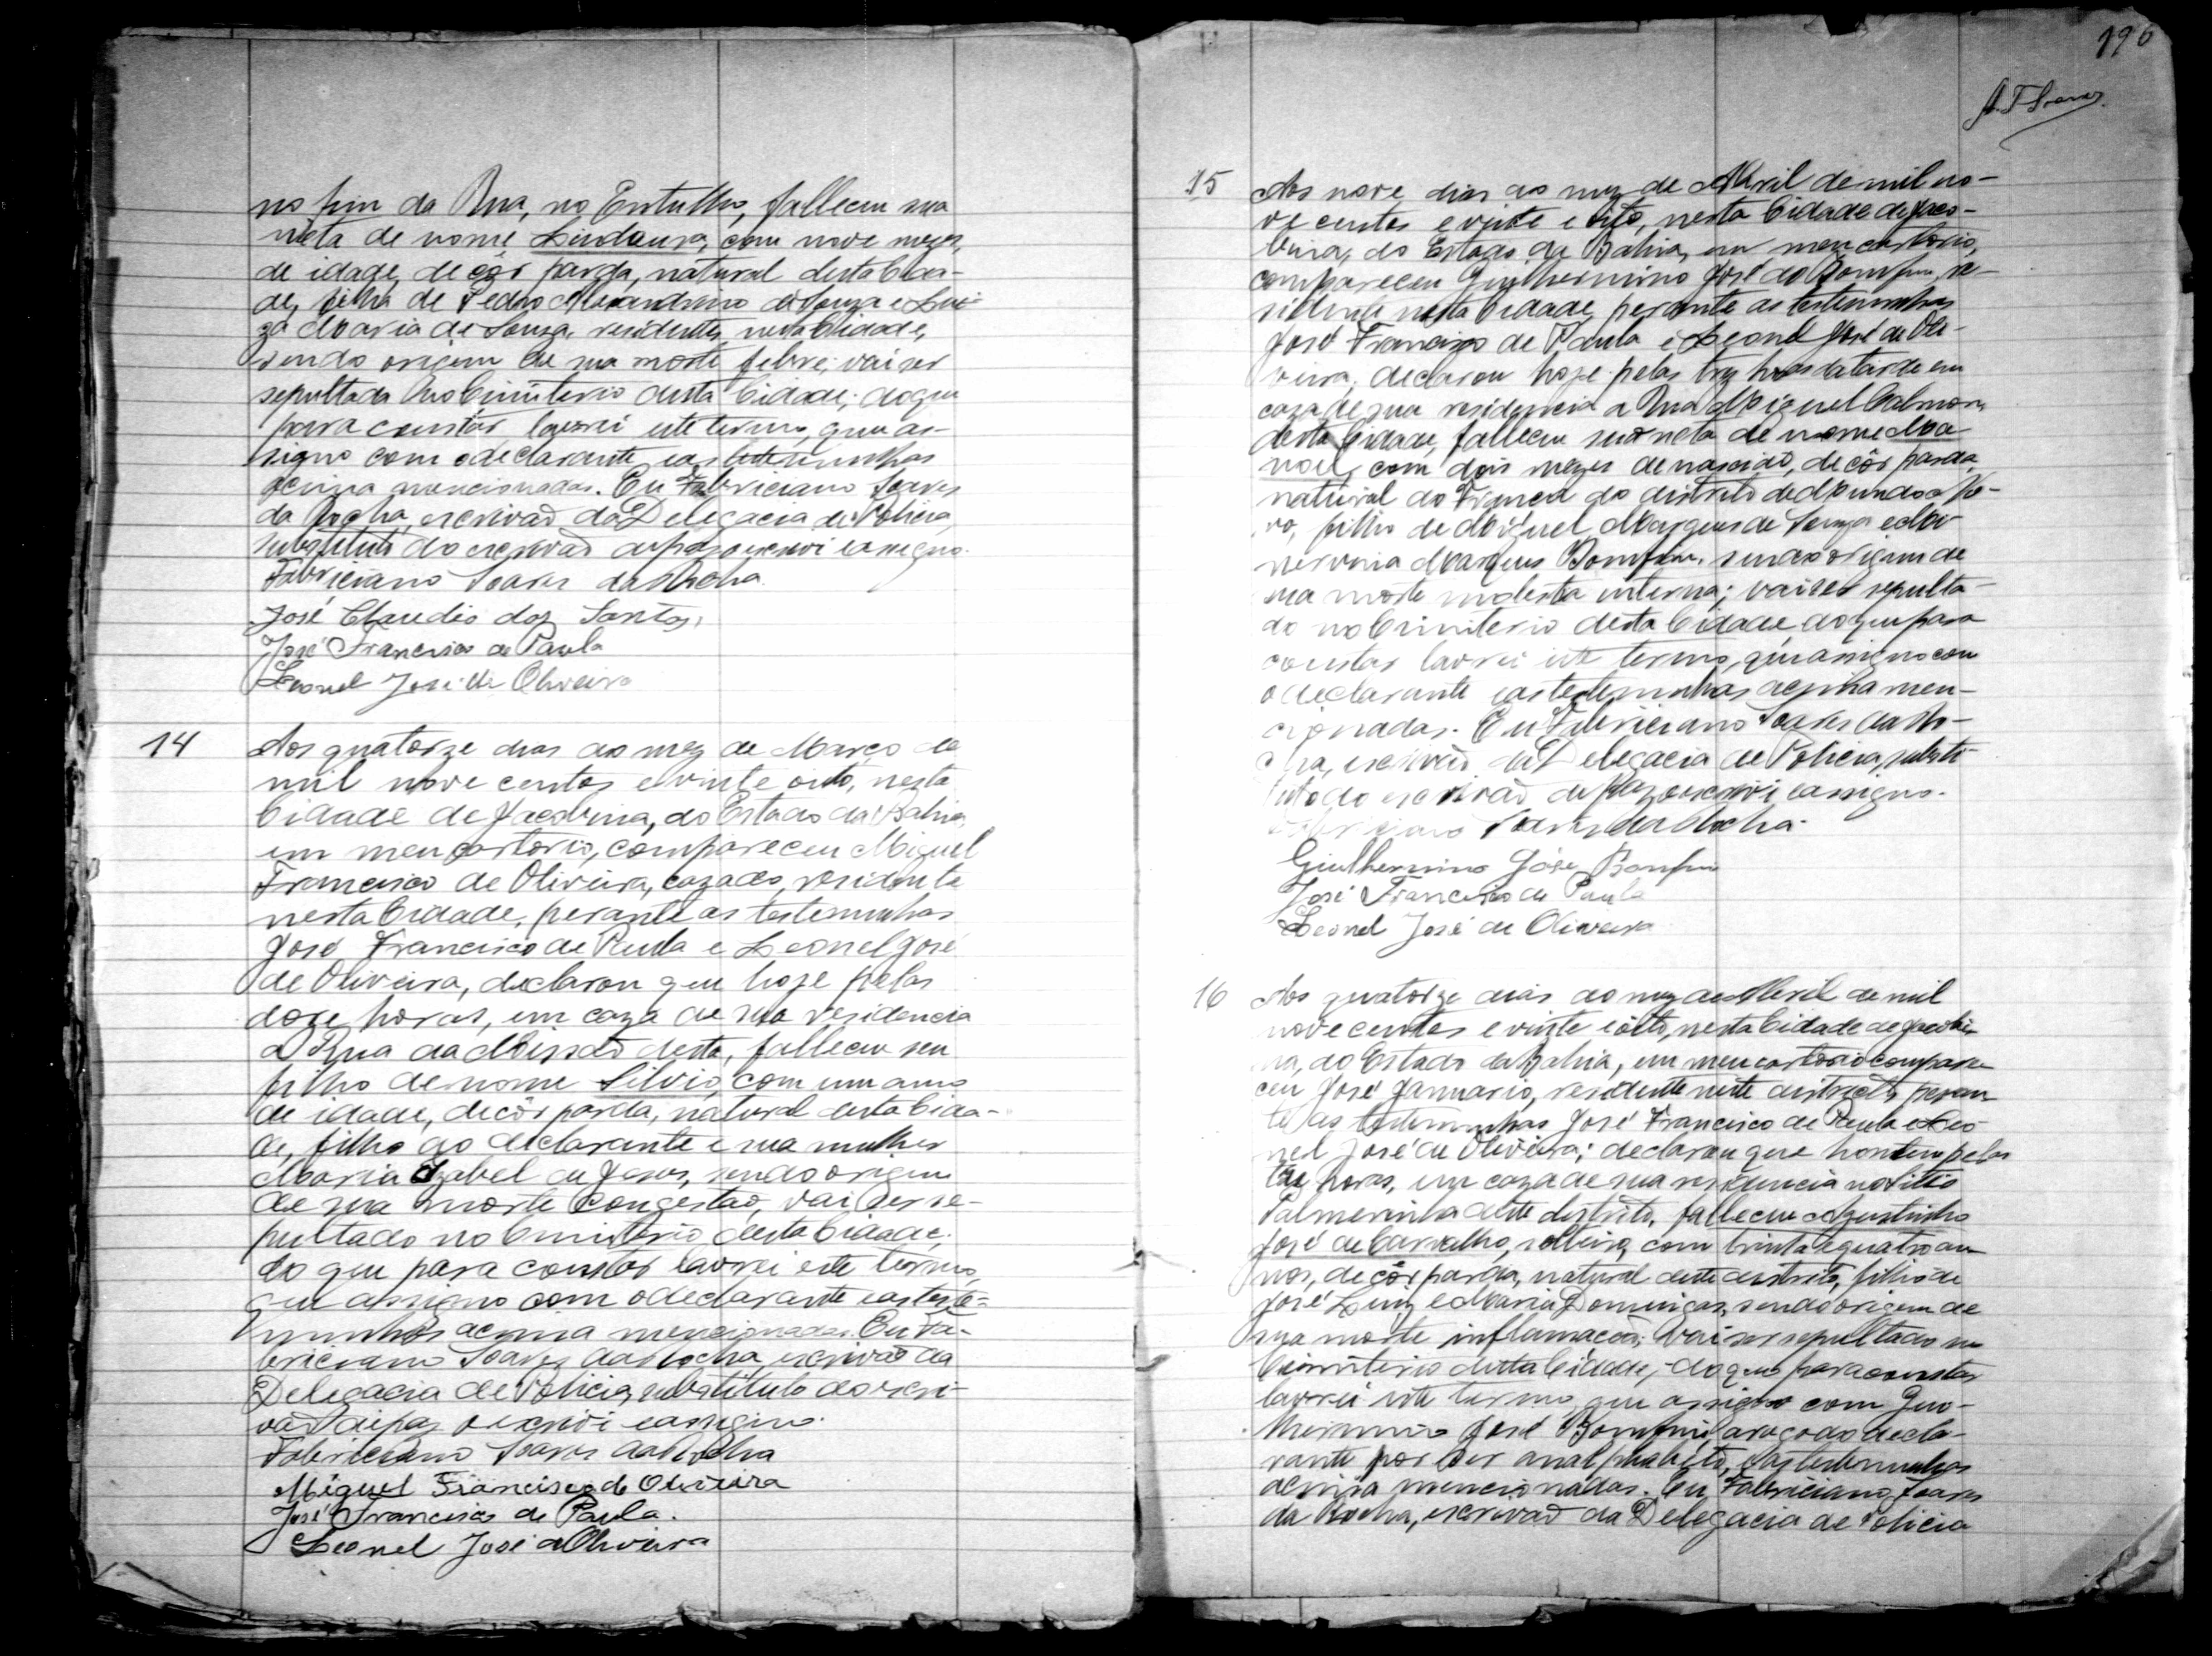 no fim da Rua, no Entulho, falleceu sua
néta de nome Lindaura, com nove mezes,
de idade, de côr parda, natural desta Cida-
de, filha de Pedro Alexandrino de Souza e Lui-
za Maria de Souza, residentes nesta Cidade,
sendo origem de sua morte febre; vai ser
sepultada no Cimiterio desta Cidade; do que
para constar lavrei este termo, que as-
signo com o declarante e as testemunhas
acima mencionadas. Eu Fabriciano Soares
da Rocha, escrivaõ da Delegacia de Policia,
substituto do escrivaõ de paz o escrevi e assigno.
Fabriciano Soares da Rocha.
José Claudio dos Santos,
José Francisco de Paula
Leonel José de Oliveira
14
Aos quatorze dias do mez de Março de
mil nove centos e vinte oito, nesta
Cidade de Jacobina, do Estado da Bahia,
em meu cartorio, compareceu Miguel
Francisco de Oliveira, cazado, residente
nesta Cidade, perante as testemunhas
José Francisco de Paula e Leonel José
de Oliveira, declarou que hoje pelas
doze horas, em caza de sua residencia
a Rua da Missaõ desta, falleceu seu
filho de nome Silvio, com um anno
de idade, de côr parda, natural desta Cida-
de, filho do declarante e sua mulher
Maria Izabel de Jesus, sendo origem
de sua morte congestaõ, vai ser se-
pultado no Cimiterio desta Cidade;
do que para constar lavrei este termo,
que assigno com o declarante e as teste-
munhas acima mencionadas. Eu Fa-
briciano Soares da Rocha, escrivaõ da
Delegacia de Policia, substituto do escri-
vaõ de paz o escrevi e assigno.
Fabriciano Soares da Rocha
Miguel Francisco de Oliveira
José Francisco de Paula.
Leonel José d'Oliveira
196
15
Aos nove dias do mez de Abril de mil no-
ve centos e vinte e oito, nesta Cidade de Jaco-
bina, do Estado da Bahia, em meu cartorio,
compareceu Guilhermino José do Bomfim, re-
sidente nesta Cidade, perante as testemunhas
José Francisco de Paula e Leonel José de Oli-
veira; declarou hoje pelas trez horas da tarde em
caza de sua residencia a Rua Miguel Calmon,
desta Cidade, falleceu seu neto de nome Ma-
noel, com dois mezes de nascido, de côr parda,
natural do França do districto de Mundo No-
vo, filho de Miguel Marques de Souza e Mi-
nervina Marques Bomfim, sendo origem de
sua morte molestia interna; vai ser sepulta-
do no Cimiterio desta Cidade, do que para
constar lavrei este termo, que assigno com
o declarante e as testemunhas acima men-
cionadas. Eu Fabriciano Soares da Ro-
cha, escrivaõ da Delegacia de Policia, substi-
tuto do escrivaõ de paz o escrevi e assigno.
Fabriciano Soares da Rocha.
Guilhermino José Bomfim
José Francisco de Paula
Leonel José de Oliveira
16
Aos quatorze dias do mez de Abril de mil
nove centos e vinte e oito, nesta Cidade de Jacobi-
na, do Estado da Bahia, em meu cartorio compare-
ceu José Januario, residente neste districto, peran-
te as testemunhas José Francisco de Paula e Leo-
nel José de Oliveira; declarou que hontem pelas
trez horas, em caza de sua residencia no sitio
Palmerinha deste districto, falleceu Agustinho
José de Carvalho, solteiro, com trinta e quatro an-
nos, de côr parda, natural deste districto, filho de
José Luiz e Maria Domingas, sendo origem de
sua morte inflamacaõ; vai ser sepultado no
Cimiterio desta Cidade; do que para constar
lavrei este termo, que assigno com Gui-
lhermino José Bomfim, a rogo do decla-
rante por ser analphabeto, e as testemunhas
acima mencionadas. Eu Fabriciano Soares
da Rocha, escrivaõ da Delegacia de Policia